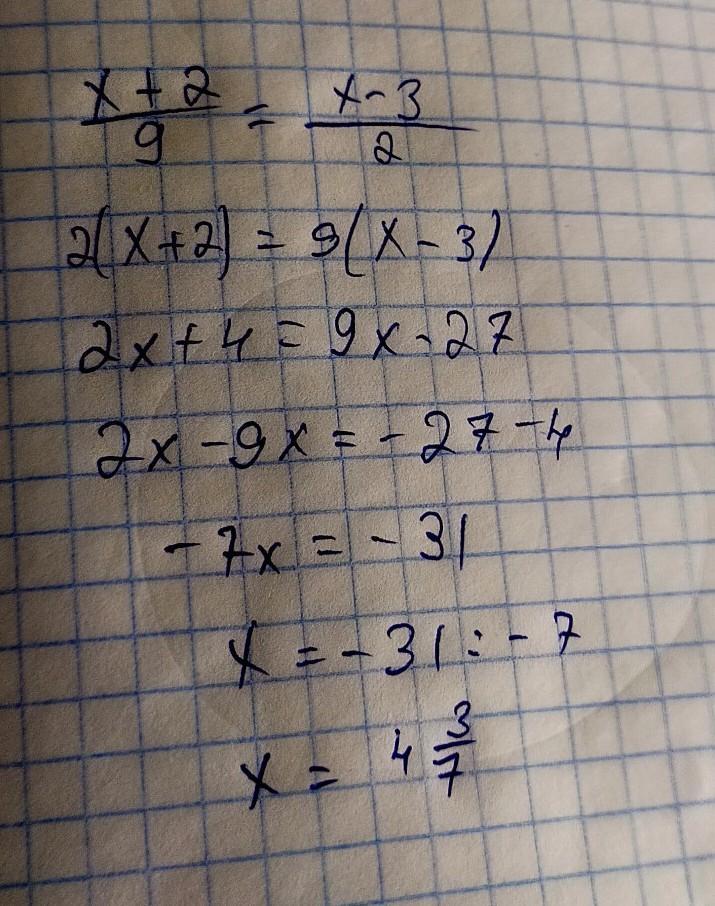 x+2/9 = x-3/2
2(x+2) = 9(x-3)
2x+4 = 9x-27
2x-9x = -27-4
-7x = -31
x = -31 : -7
x = 4 3/7